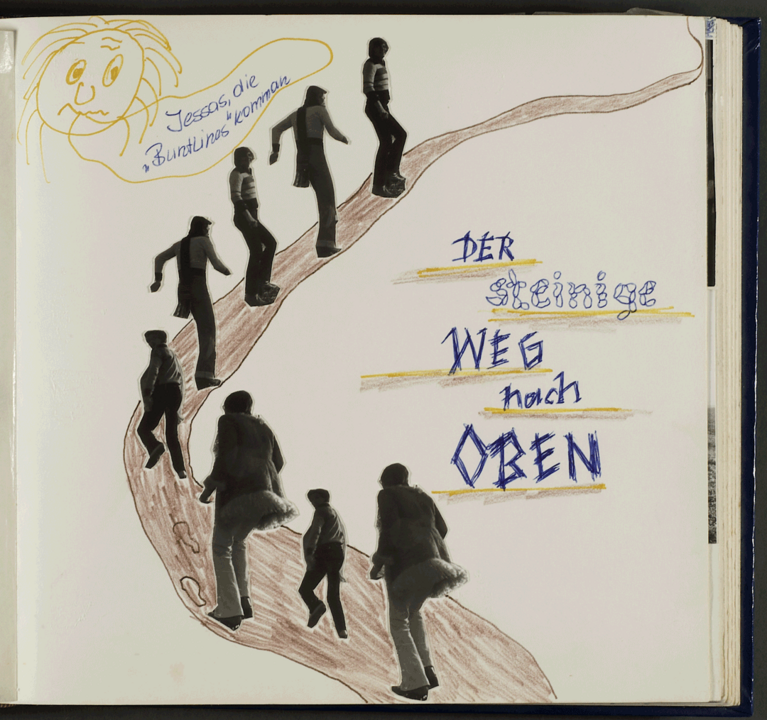 Jessas, die
"Buntlines" komman
DER
steinige
WEG
nach
OBEN